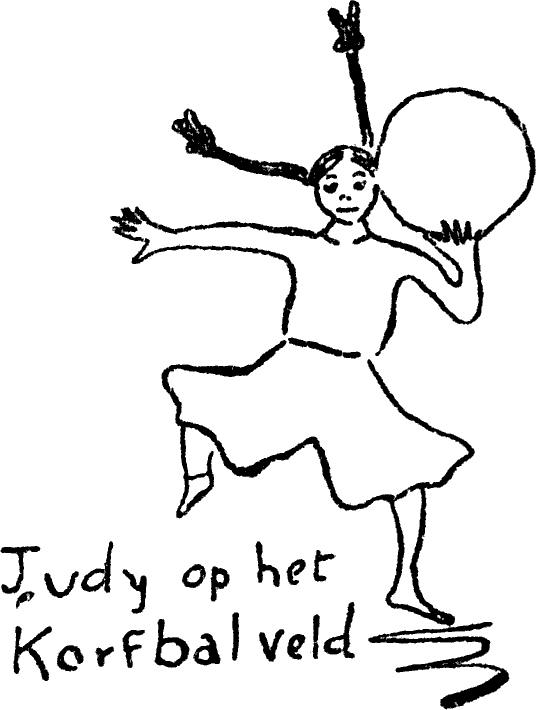 Judy op het
Korfbalveld